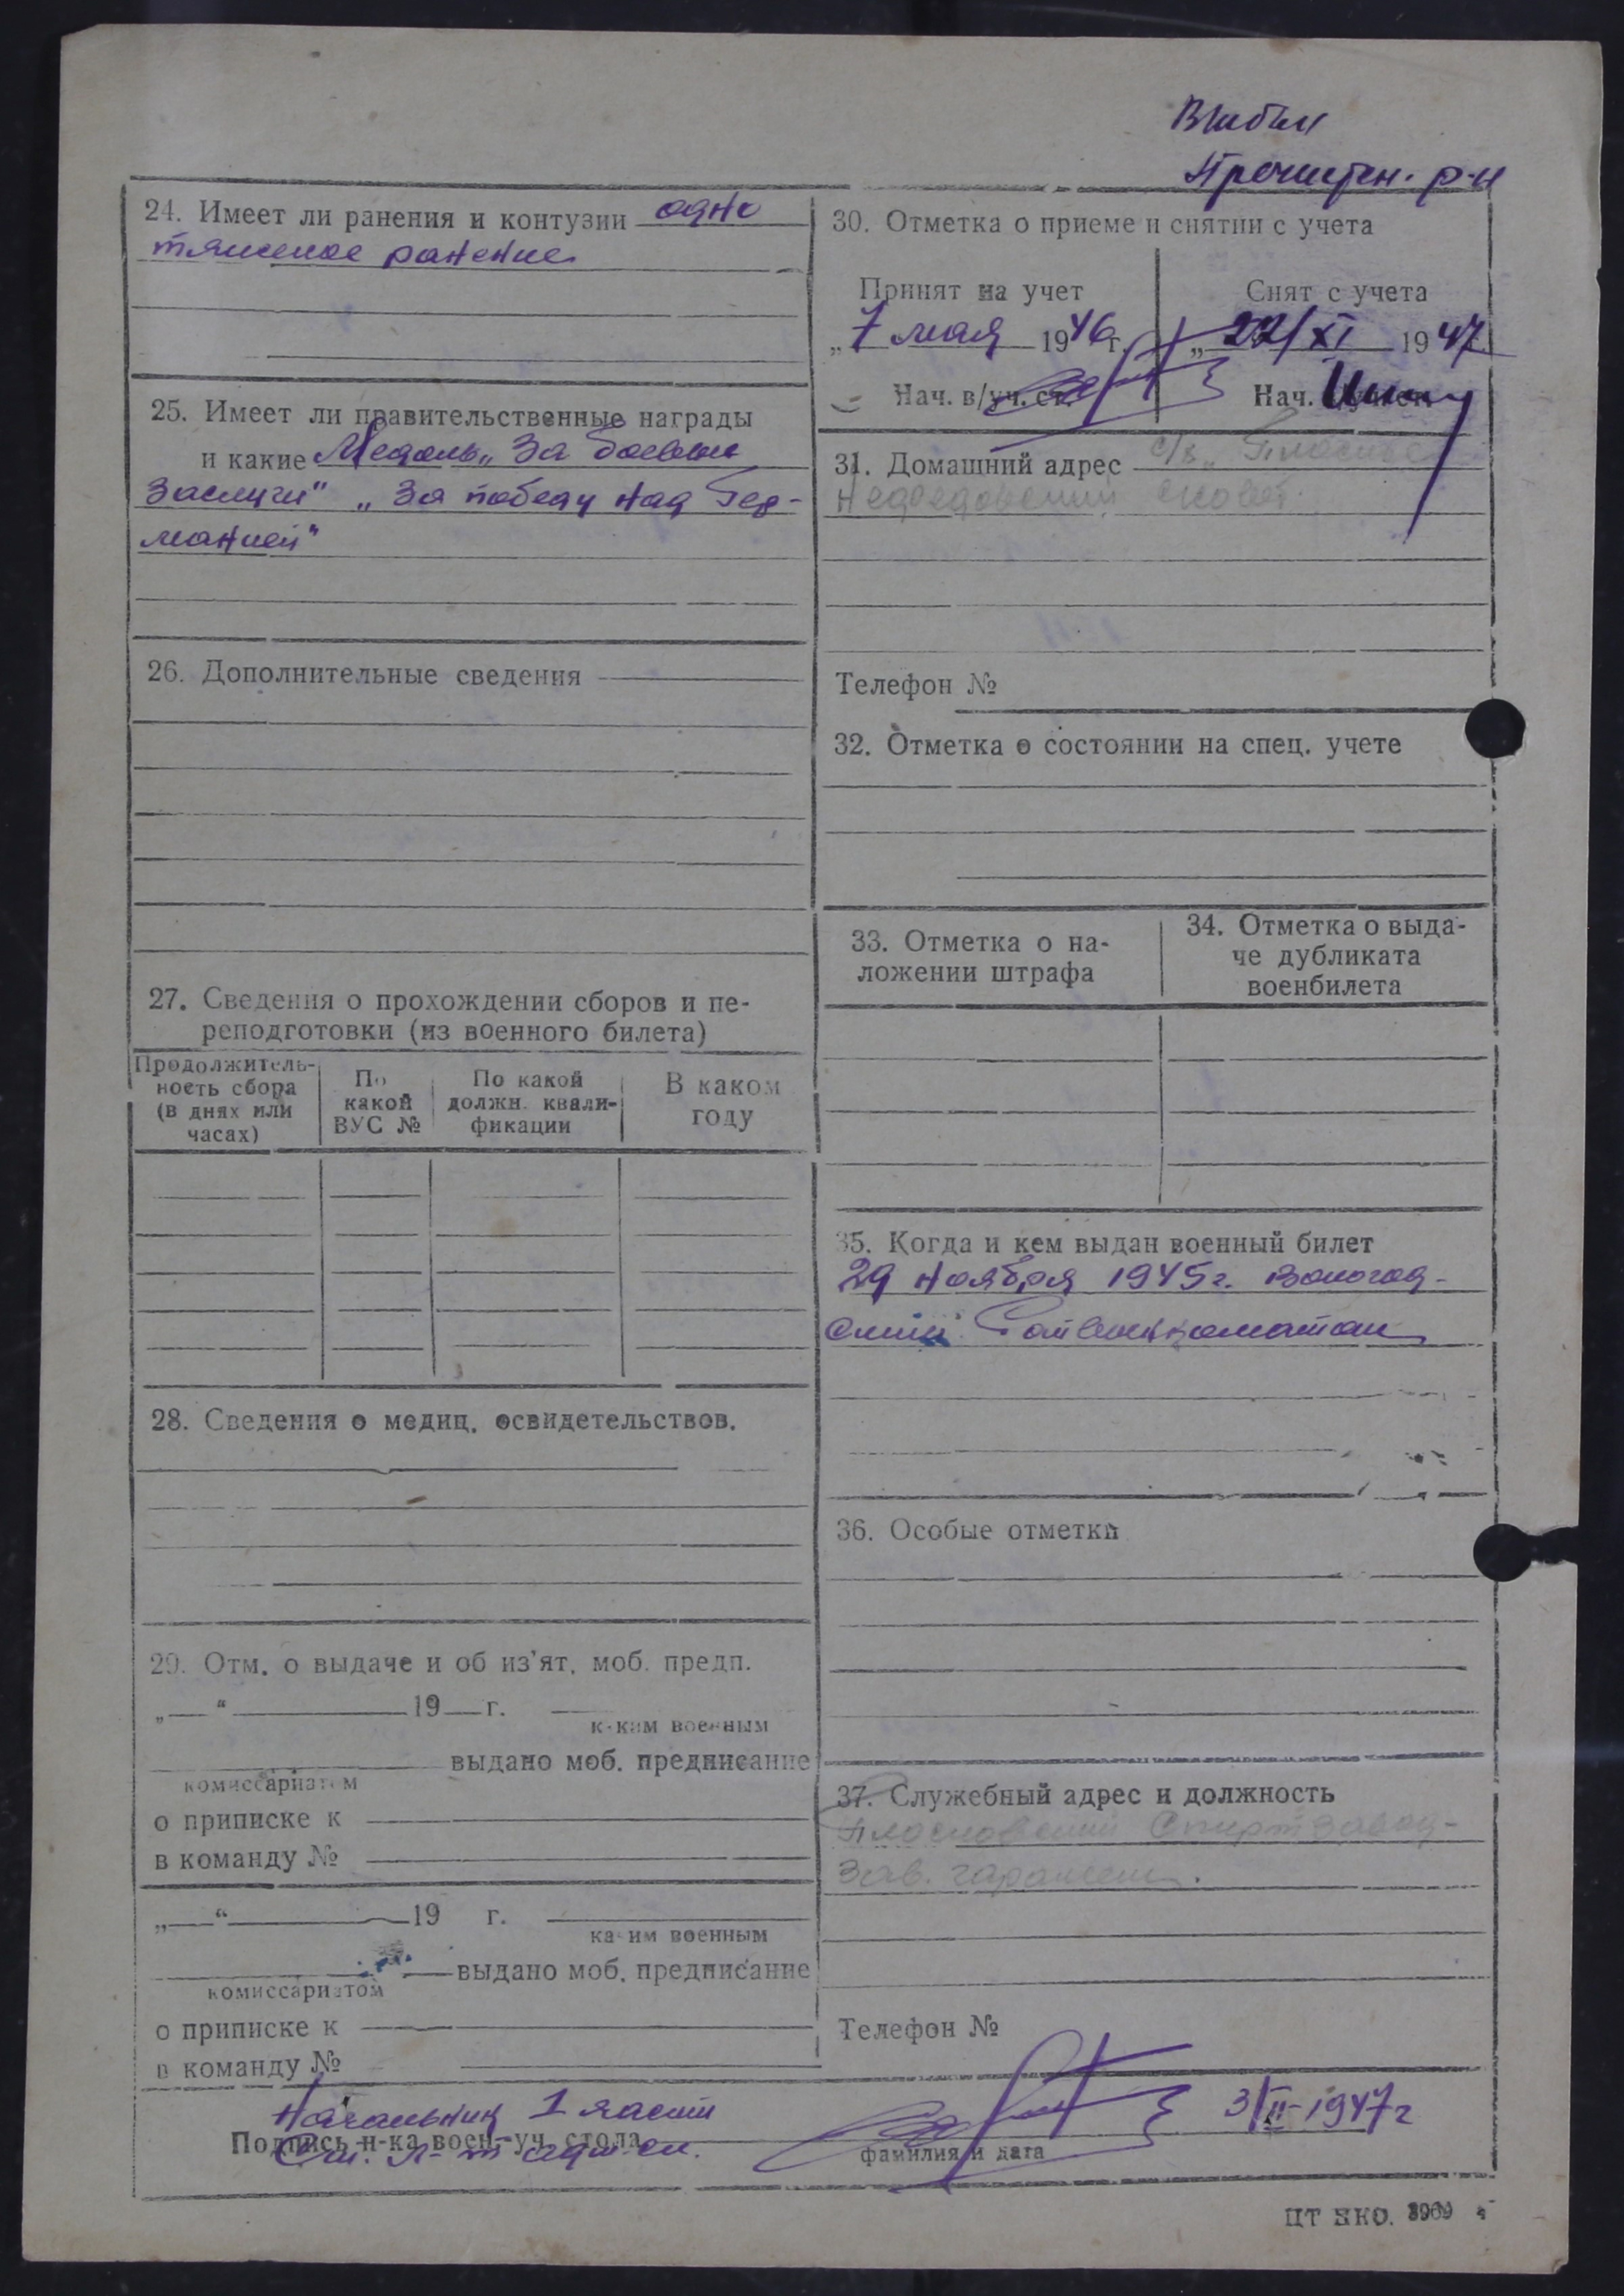 Выбыл
Пречистен. р-н
24. Имеет ли ранения и контузии одно
тяжелое ранение
25. Имеет ли правительственные награды
и какие Медаль „За боевые
заслуги" „За победу над Гер-
манией"
26. Дополнительные сведения
27. Сведения о прохождении сборов и пе-
реподготовки (из военного билета)
Продолжитель-
ность сбора
(в днях или
часах)
По
какой
ВУС №
По какой
должн. квали-
фикации
В каком
году
28. Сведения о медиц. освидетельствов.
29. Отм. о выдаче и об из'ят. моб. предп.
„ " 19 г.
каким военным
выдано моб. предписание
комиссариатом
о приписке к
в команду №
„ " 19 г.
каким военным
выдано моб. предписание
комиссариатом
о приписке к
в команду №
30. Отметка о приеме и снятии с учета
Принят на учет
„7 мая 1946 г.
Нач. в/уч. ст.
Снят с учета
„22/XI 1947
Нач.
31. Домашний адрес с/з „
совет.
Телефон №
32. Отметка о состоянии на спец. учете
33. Отметка о на-
ложении штрафа
34. Отметка о выда-
че дубликата
военбилета
35. Когда и кем выдан военный билет
29 ноября 1945 г. Вологод-
ским Райвоенкоматом
36. Особые отметки
37. Служебный адрес и должность
Плосковский Спиртзавод-
зав. гаражем.
Телефон №
Начальник 1 части
Подпись н-ка воен-уч. стола
Ст. л-т адм. сл.
3/II-1947 г
фамилия и дата
ЦТ НКО. 3969